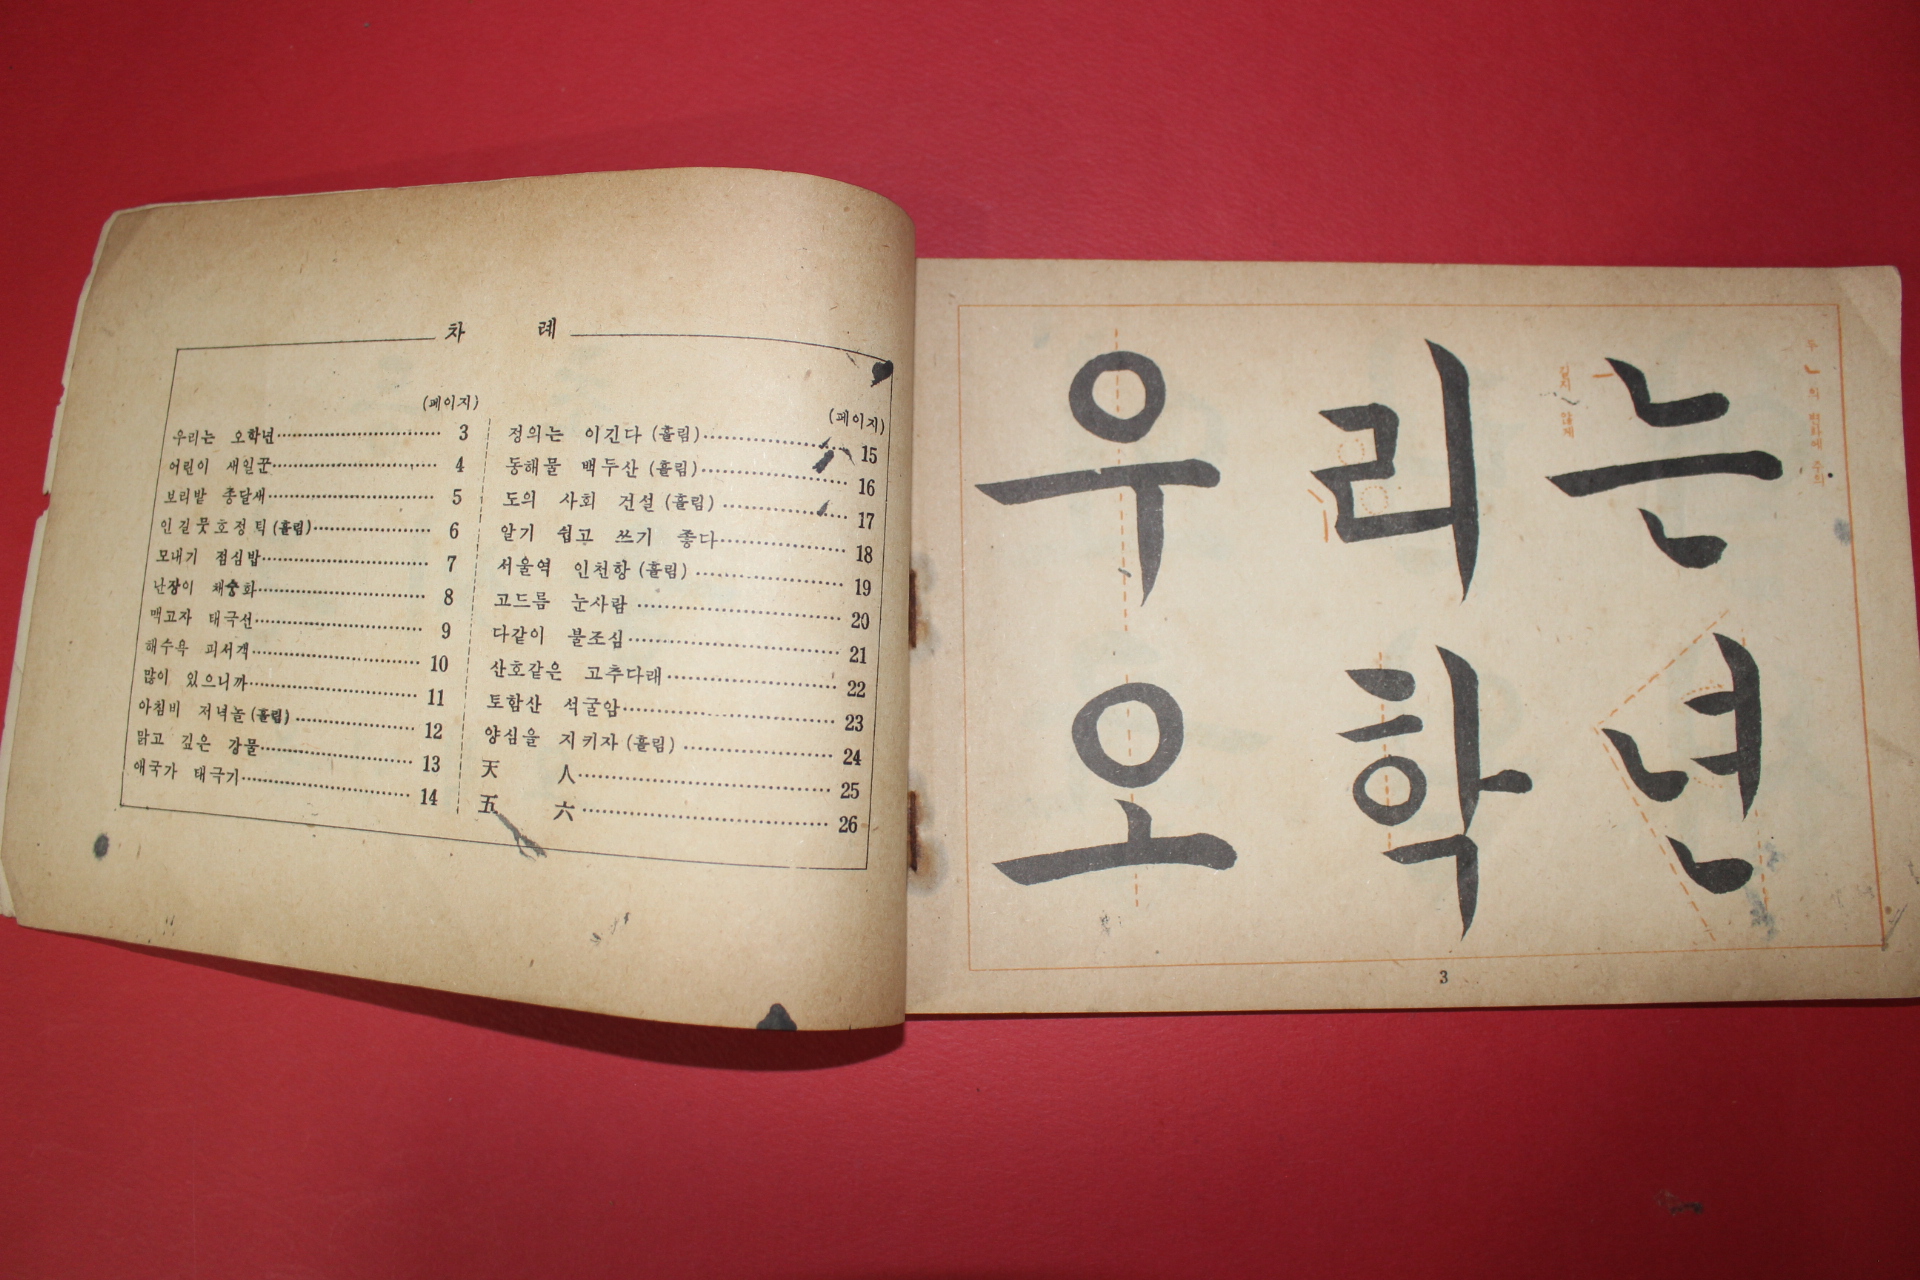 차 례
(페이지)
우리는 오학년 3
어린이 새일꾼 4
보리밭 종달새 5
인길뭇호정틱(흘림) 6
모내기 점심밥 7
난장이 채숭화 8
맥고자 태극선 9
해수욕 피서객 10
많이 있으니까 11
아침비 저녁놀(흘림) 12
맑고 깊은 강물 13
애국가 태극기 14
(페이지)
정의는 이긴다 (흘림) 15
동해물 백두산 (흘림) 16
도의 사회 건설 (흘림) 17
알기 쉽고 쓰기 좋다 18
서울역 인천항 (흘림) 19
고드름 눈사람 20
다같이 불조심 21
산호같은 고추다래 22
토함산 석굴암 23
양심을 지키자 (흘림) 24
天 人 25
五 六 26
우리는
오학년
두 ㄴ의 변화에 주의
길지 않게
3